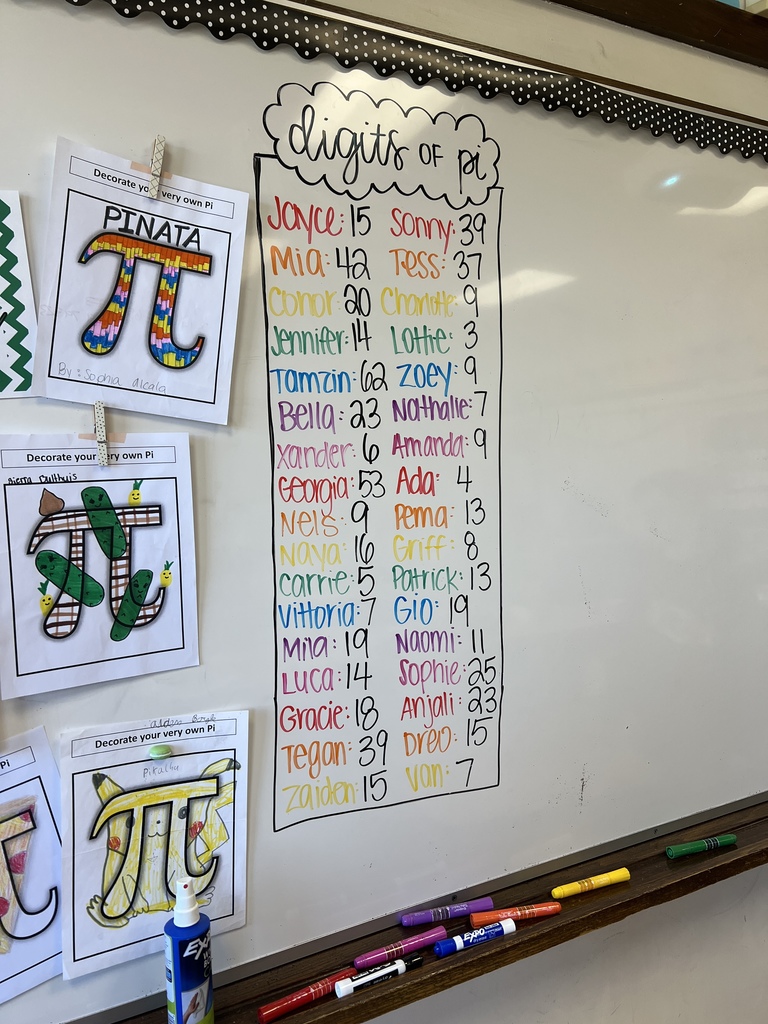 digits of pi
Joyce: 15 Sonny: 39
Mia: 42 Tess: 37
Conor: 20 Charlotte: 9
Jennifer: 14 Lottie: 3
Tamzin: 62 Zoey: 9
Bella: 23 Nathalie: 7
Xander: 6 Amanda: 9
Georgia: 53 Ada: 4
Nels: 9 Pema: 13
Naya: 16 Griff: 8
Carrie: 5 Patrick: 13
Vittoria: 7 Gio: 19
Mila: 19 Naomi: 11
Luca: 14 Sophie: 25
Gracie: 18 Anjali: 23
Tegan: 39 Drew: 15
Zaiden: 15 Van: 7
Decorate your very own Pi
PINATA
By: Sophia Alcala
Decorate your very own Pi
Decorate your very own Pi
Pikachu
Pi
EXPO
EXPO